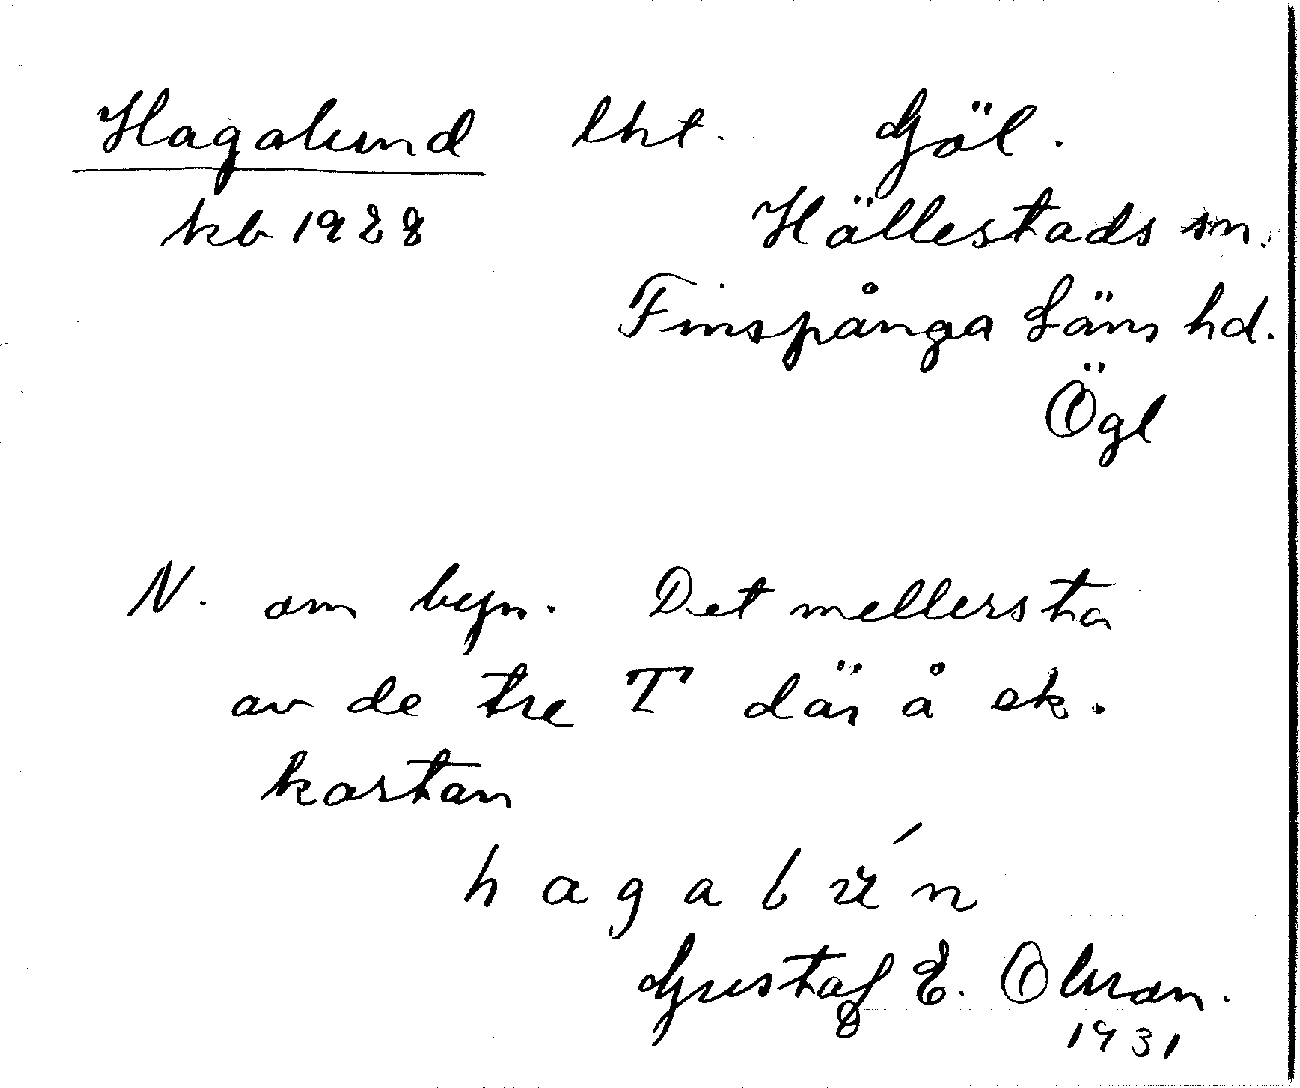 Hagalund lht. Göl.
kb 1928 Hällestads sn.
Finspånga Läns hd.
Ögl
N. om byn. Det mellersta
av de tre T där å ek.
kartan
Gustaf E. Olson.
1931